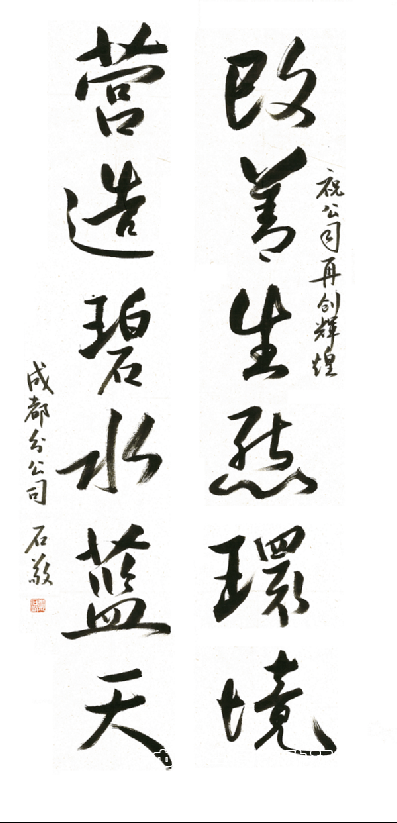 祝公司再创辉煌
改善生态環境
营造碧水蓝天
成都分公司 石敬